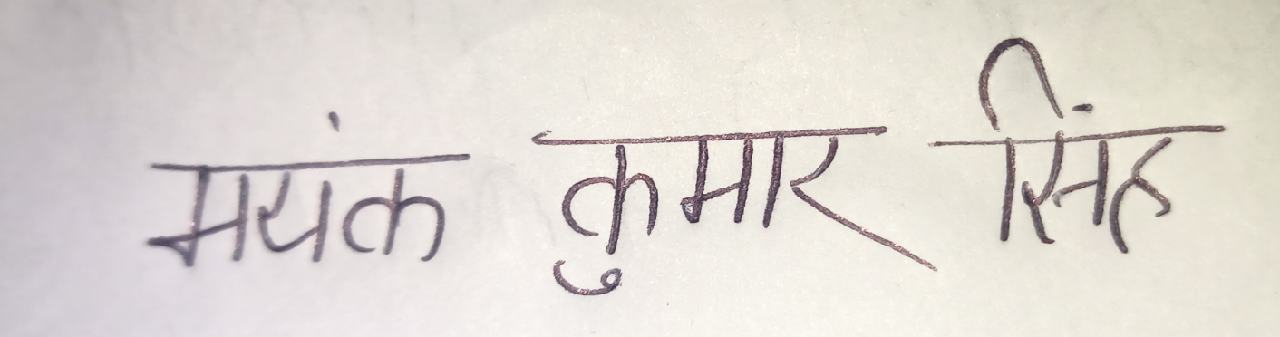 मयंक कुमार सिंह